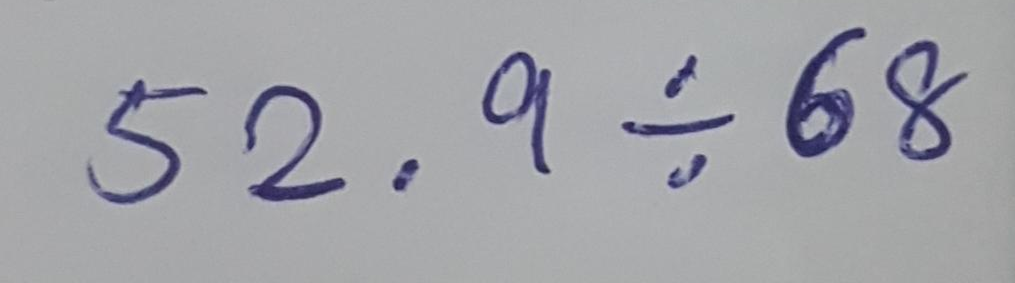 52.9÷68